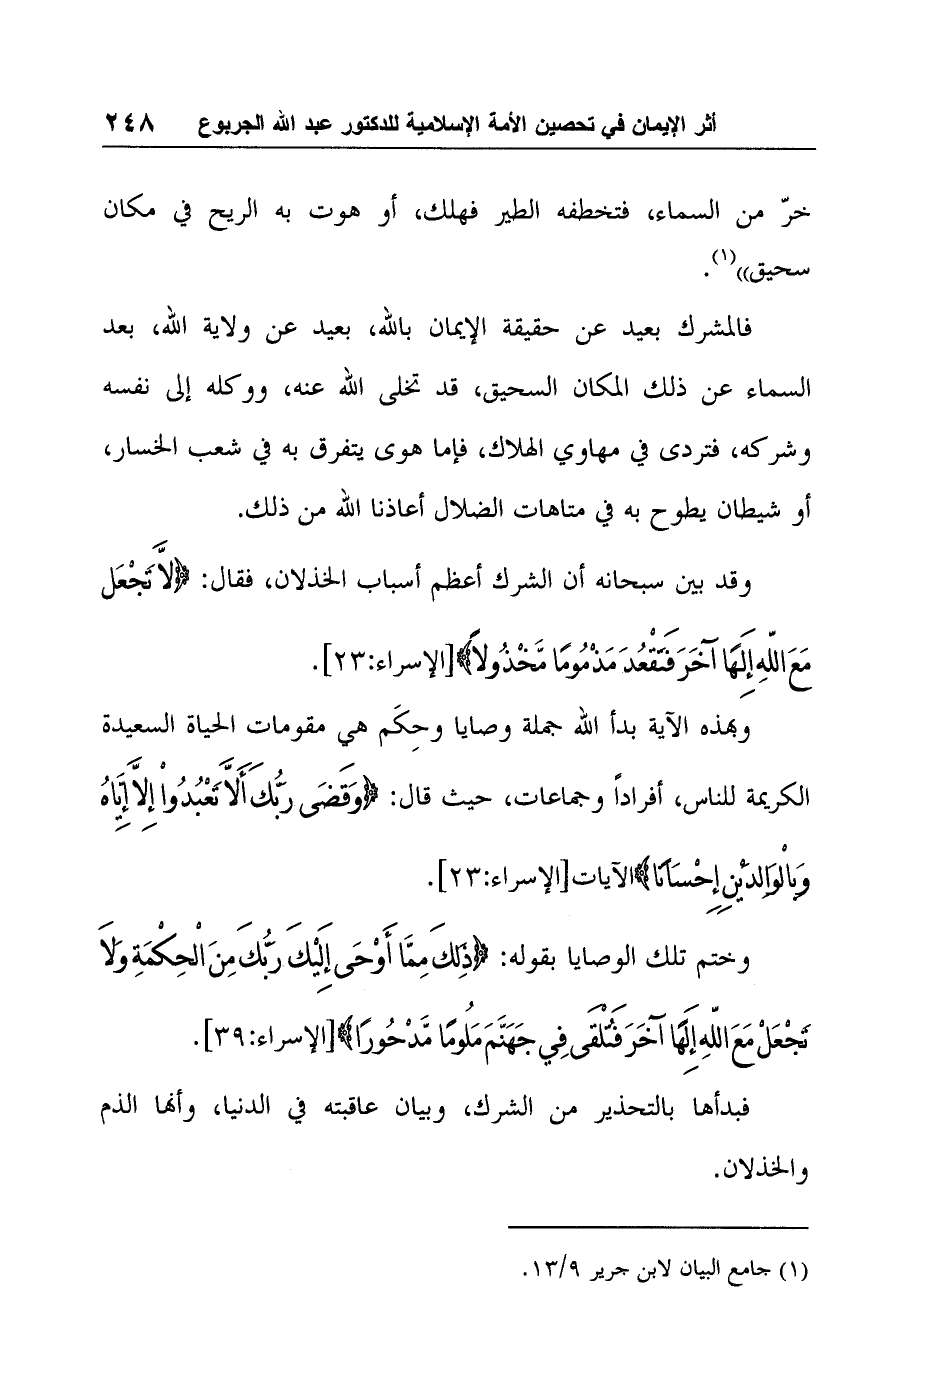 أثر الإيمان في تحصين الأمة الإسلامية للدكتور عبد الله الجربوع ٢٤٨
خرّ من السماء، فتخطفه الطير فهلك، أو هوت به الريح في مكان
سحيق))(١).
فالمشرك بعيد عن حقيقة الإيمان بالله، بعيد عن ولاية الله، بعد
السماء عن ذلك المكان السحيق، قد تخلى الله عنه، ووكله إلى نفسه
وشركه، فتردى في مهاوي الهلاك، فإما هوى يتفرق به في شعب الخسار،
أو شيطان يطوح به في متاهات الضلال أعاذنا الله من ذلك.
وقد بين سبحانه أن الشرك أعظم أسباب الخذلان، فقال: ﴿لاَّ تَجْعَل
مَعَ اللّهِ إِلَهًا آخَرَ فَتَقْعُدَ مَذْمُومًا مَّخْذُولاً﴾[الإسراء:٢٣].
وبهذه الآية بدأ الله جملة وصايا وحِكَم هي مقومات الحياة السعيدة
الكريمة للناس، أفراداً وجماعات، حيث قال: ﴿وَقَضَى رَبُّكَ أَلاَّ تَعْبُدُواْ إِلاَّ إِيَّاهُ
وَبِالْوَالِدَيْنِ إِحْسَانًا﴾الآيات[الإسراء:٢٣].
وختم تلك الوصايا بقوله: ﴿ذَلِكَ مِمَّا أَوْحَى إِلَيْكَ رَبُّكَ مِنَ الْحِكْمَةِ وَلاَ
تَجْعَلْ مَعَ اللّهِ إِلَهًا آخَرَ فَتُلْقَى فِي جَهَنَّمَ مَلُومًا مَّدْحُورًا﴾[الإسراء:٣٩].
فبدأها بالتحذير من الشرك، وبيان عاقبته في الدنيا، وأنها الذم
والخذلان.
(١) جامع البيان لابن جرير ١٣/٩.